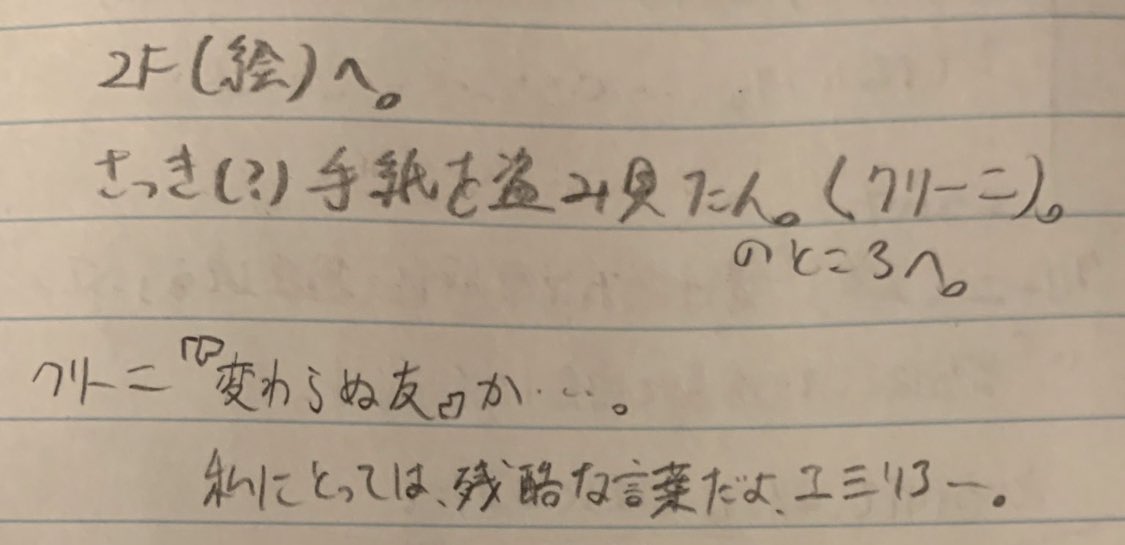 2F(絵)へ。
さっき(?)手紙を盗み見たん。(クリーニ)。
のところへ。
クリーニ『変わらぬ友』か…。
私にとっては、残酷な言葉だよ、エミリー。